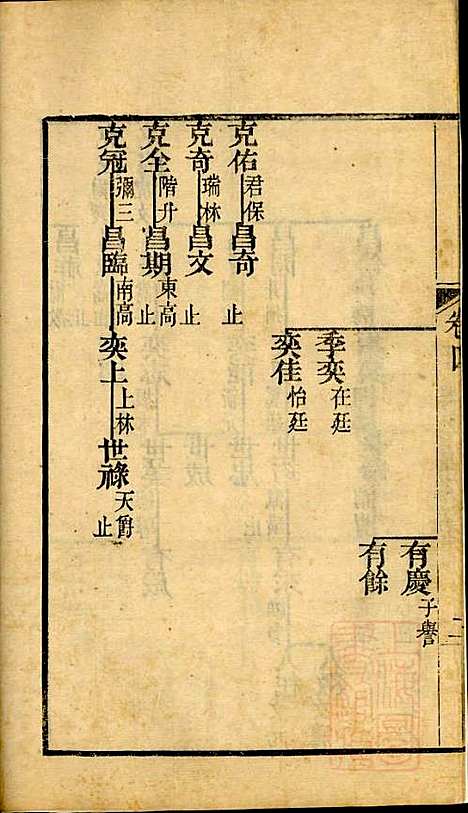 卷四
二
有慶子譽
有餘
季奕在廷
奕佳怡廷
克佑君保昌奇止
克奇瑞林昌文止
克全階升昌期東高止
克冠彌三昌臨南高奕上上林世祿天爵止